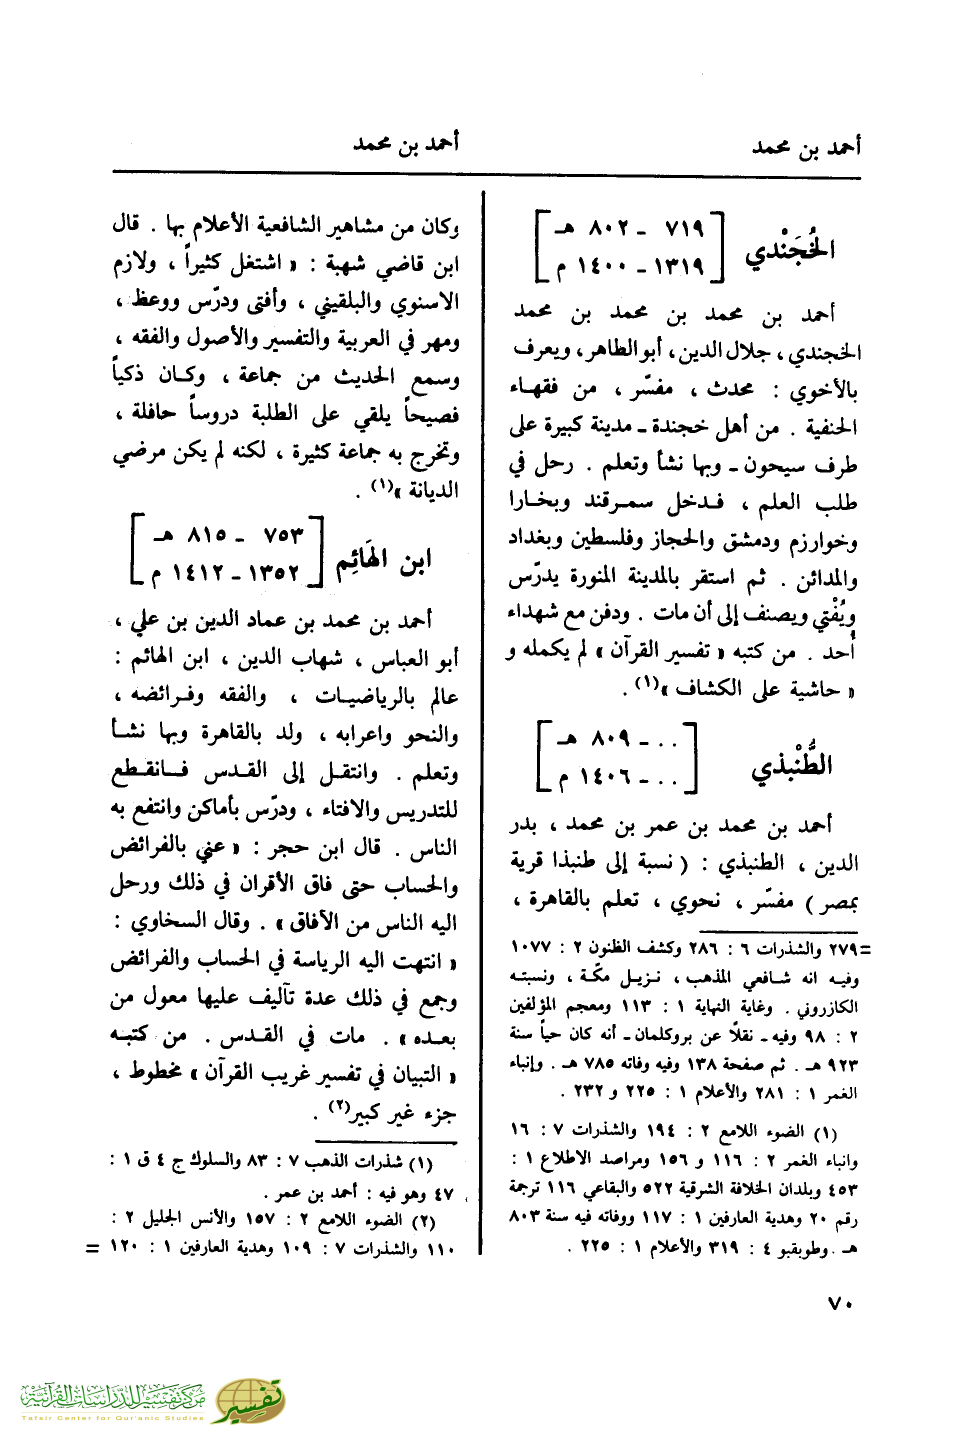 أحمد بن محمد
أحمد بن محمد
الخُجَنْدي
[ ٧١٩ ـ ٨٠٢ هـ
١٣١٩ ـ ١٤٠٠ م ]
أحمد بن محمد بن محمد بن محمد
الخجندي، جلال الدين، أبو الطاهر، ويعرف
بالأخوي : محدث ، مفسّر ، من فقهاء
الحنفية . من أهل خجندة ـ مدينة كبيرة على
طرف سيحون ـ وبها نشأ وتعلم . رحل في
طلب العلم ، فدخل سمرقند وبخارا
وخوارزم ودمشق والحجاز وفلسطين وبغداد
والمدائن . ثم استقر بالمدينة المنورة يدرّس
ويُفْتي ويصنف إلى أن مات . ودفن مع شهداء
أُحد . من كتبه « تفسير القرآن » لم يكمله و
« حاشية على الكشاف »(١) .
الطُّنْبذي
[ . . ـ ٨٠٩ هـ
. . ـ ١٤٠٦ م ]
أحمد بن محمد بن عمر بن محمد ، بدر
الدين ، الطنبذي : ( نسبة إلى طنبذا قرية
بمصر ) مفسّر ، نحوي ، تعلم بالقاهرة ،
=٢٧٩ والشذرات ٦ : ٢٨٦ وكشف الظنون ٢ : ١٠٧٧
وفيه انه شافعي المذهب ، نزيل مكّة ، ونسبته
الكازروني . وغاية النهاية ١ : ١١٣ ومعجم المؤلفين
٢ : ٩٨ وفيه ـ نقلاً عن بروكلمان ـ أنه كان حياً سنة
٩٢٣ هـ . ثم صفحة ١٣٨ وفيه وفاته ٧٨٥ هـ . وإنباء
الغمر ١ : ٢٨١ والأعلام ١ : ٢٢٥ و ٢٣٢ .
(١) الضوء اللامع ٢ : ١٩٤ والشذرات ٧ : ١٦
وانباء الغمر ٢ : ١١٦ و ١٥٦ ومراصد الاطلاع ١ :
٤٥٣ وبلدان الخلافة الشرقية ٥٢٢ والبقاعي ١١٦ ترجمة
رقم ٢٠ وهدية العارفين ١ : ١١٧ ووفاته فيه سنة ٨٠٣
هـ . وطوبقبو ٤ : ٣١٩ والأعلام ١ : ٢٢٥ .
وكان من مشاهير الشافعية الأعلام بها . قال
ابن قاضي شهبة : « اشتغل كثيراً ، ولازم
الاسنوي والبلقيني ، وأفتى ودرّس ووعظ ،
ومهر في العربية والتفسير والأصول والفقه ،
وسمع الحديث من جماعة ، وكان ذكياً
فصيحاً يلقي على الطلبة دروساً حافلة ،
وتخرج به جماعة كثيرة ، لكنه لم يكن مرضي
الديانة »(١) .
ابن الهَائِم
[ ٧٥٣ ـ ٨١٥ هـ
١٣٥٢ ـ ١٤١٢ م ]
أحمد بن محمد بن عماد الدين بن علي ،
أبو العباس ، شهاب الدين ، ابن الهائم :
عالم بالرياضيات ، والفقه وفرائضه ،
والنحو واعرابه ، ولد بالقاهرة وبها نشأ
وتعلم . وانتقل إلى القدس فانقطع
للتدريس والافتاء ، ودرّس بأماكن وانتفع به
الناس . قال ابن حجر : « عني بالفرائض
والحساب حتى فاق الأقران في ذلك ورحل
اليه الناس من الأفاق » . وقال السخاوي :
« انتهت اليه الرياسة في الحساب والفرائض
وجمع في ذلك عدة تآليف عليها معول من
بعده » . مات في القدس . من كتبه
« التبيان في تفسير غريب القرآن » مخطوط ،
جزء غير كبير(٢) .
(١) شذرات الذهب ٧ : ٨٣ والسلوك ج ٤ ق ١ :
٤٧ وهو فيه : أحمد بن عمر .
(٢) الضوء اللامع ٢ : ١٥٧ والأنس الجليل ٢ :
١١٠ والشذرات ٧ : ١٠٩ وهدية العارفين ١ : ١٢٠ =
٧٠
مركز تفسير للدراسات القرآنية
Tafsir Center for Qur'anic Studies
تفسير